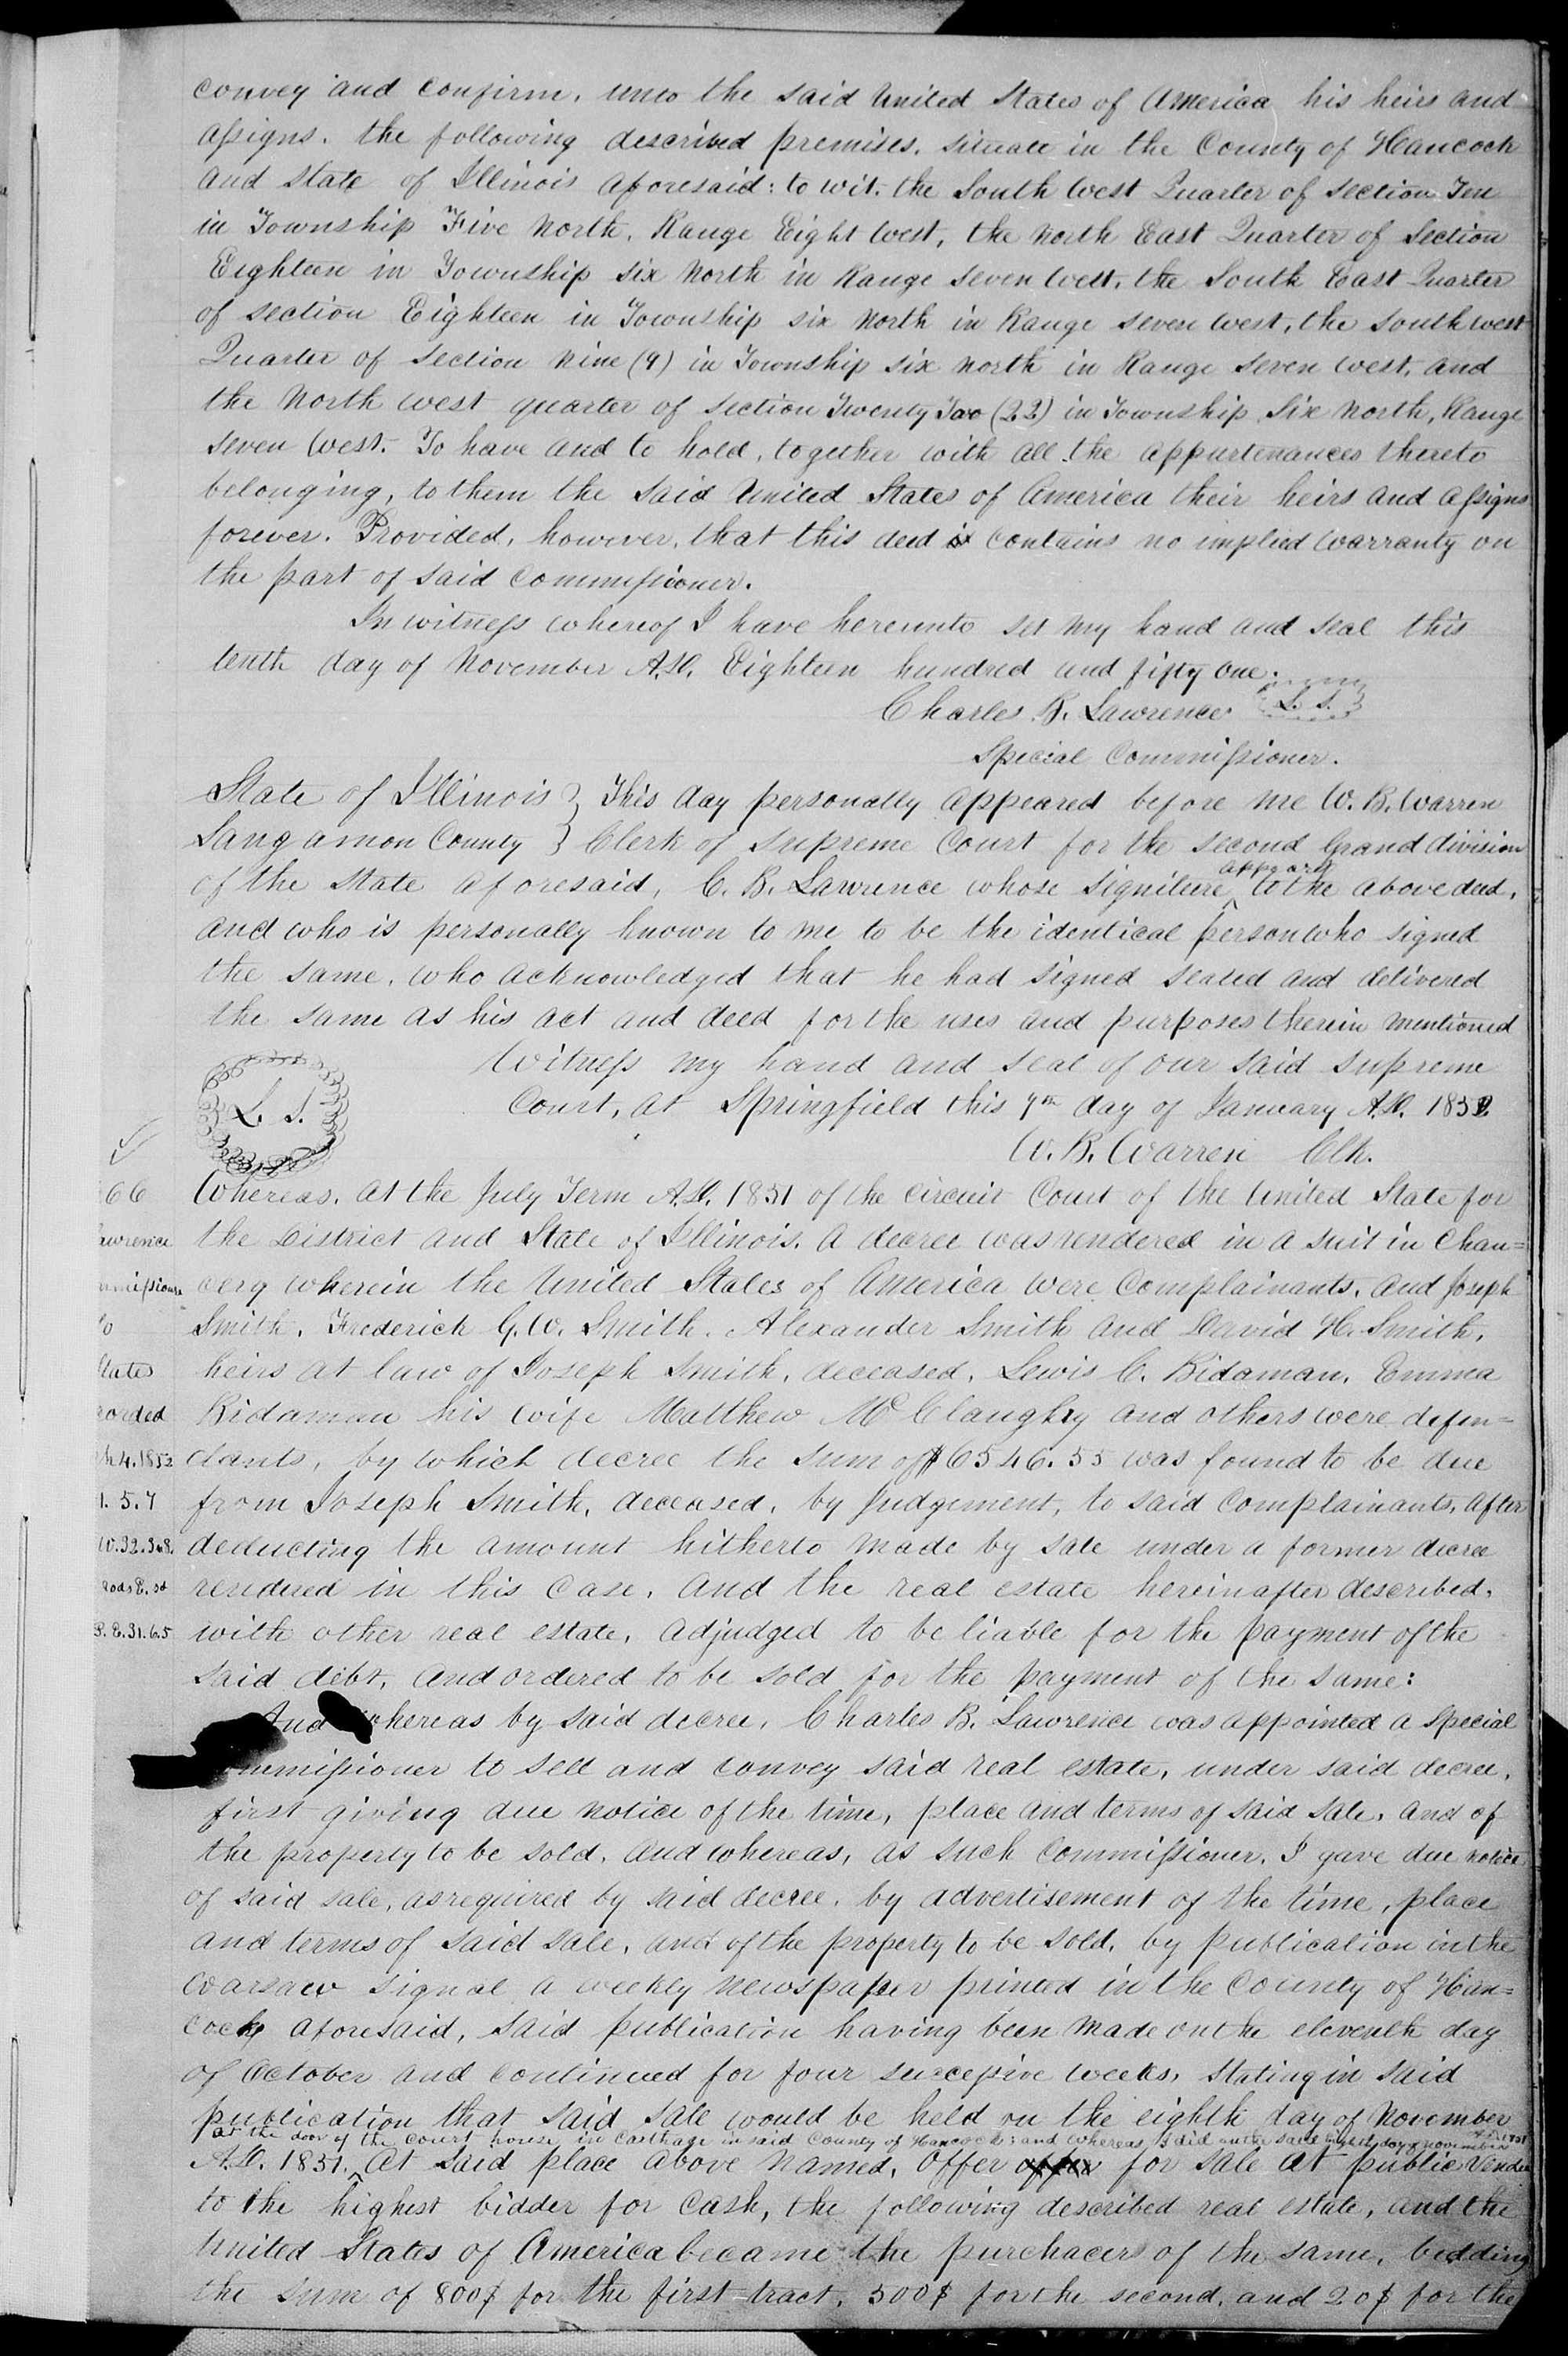 convey and confirm, unto the said United States of America his heirs and
assigns. the following described premises. situate in the County of Hancock
and State of Illinois aforesaid: to wit: the South West Quarter of section Ten
in Township Five North, Range Eight West, the North East Quarter of Section
Eighteen in Township six North in Range seven West, the South East Quarter
of section Eighteen in Township six North in Range seven West, the southwest
Quarter of section nine (9) in Township six North in Range seven west, and
the North west quarter of section Twenty Two (22) in Township Six North, Range
seven West. To have and to hold, together with all the appurtenances thereto
belonging, to them the said United States of America their heirs and assigns
forever. Provided, however, that this deed contains no implied warranty on
the part of said Commissioner.
In witness whereof I have hereunto set my hand and seal this
tenth day of November A.D. Eighteen hundred and fifty one.
Charles B. Lawrence L. S.
Special Commissioner.
State of Illinois } This day personally appeared before me W. B. Warren
Sangamon County } Clerk of supreme Court for the second Grand division
appears
of the State aforesaid, C. B. Lawrence whose signiture ^ to the above deed,
and who is personally known to me to be the identical person who signed
the same, who acknowledged that he had signed sealed and delivered
the same as his act and deed for the uses and purposes therein mentioned
Witness my hand and seal of our said supreme
L. S.
Court, at Springfield this 7th day of January A.D. 1852
W. B. Warren Clk.
66
Whereas, at the July Term A.D. 1851 of the circuit Court of the United State for
awrence
the District and State of Illinois, a decree was rendered in a suit in Chan=
mmissioner
cery wherein the United States of America were Complainants, and Joseph
to
Smith, Frederick G. W. Smith, Alexander Smith and David H. Smith,
States
heirs at law of Joseph Smith, deceased, Lewis C. Bidaman, Emma
corded
Bidaman his wife Matthew McClaughry and others were defen=
ch 4. 1852
dants, by which decree the sum of $6546.55 was found to be due
1. 5. 7
from Joseph Smith, deceased, by Judgement, to said Complainants, after
W. 32. 348.
deducting the amount hitherto made by sale under a former decree
rods E. sd
rendered in this case, and the real estate hereinafter described,
P. E. 31. 6. 5
with other real estate, adjudged to be liable for the payment of the
said debt, and ordered to be sold for the payment of the same:
And whereas by said decree, Charles B. Lawrence was appointed a special
mmissioner to sell and convey said real estate, under said decree,
first giving due notice of the time, place and terms of said sale, and of
the property to be sold, and whereas, as such Commissioner, I gave due notice
of said sale, as required by said decree, by advertisement of the time, place
and terms of said sale, and of the property to be sold, by publication in the
Warsaw signal a weekly newspaper printed in the County of Han=
cock aforesaid, said publication having been made on the eleventh day
of October and continued for four successive weeks, stating in said
publication that said sale would be held on the eighth day of November
at the door of the court house in Carthage in said County of Hancock: and whereas I did on the said eighth day of november A.D. 1851
A.D. 1851. ^ at said place above named, offer for sale at public Vendue
to the highest bidder for cash, the following described real estate, and the
United States of America became the purchacers of the same, bidding
the sum of 800$ for the first tract, 500$ for the second, and 20$ for the